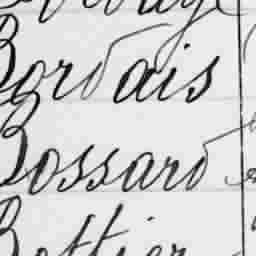 Bordais
Bossard
Bottier